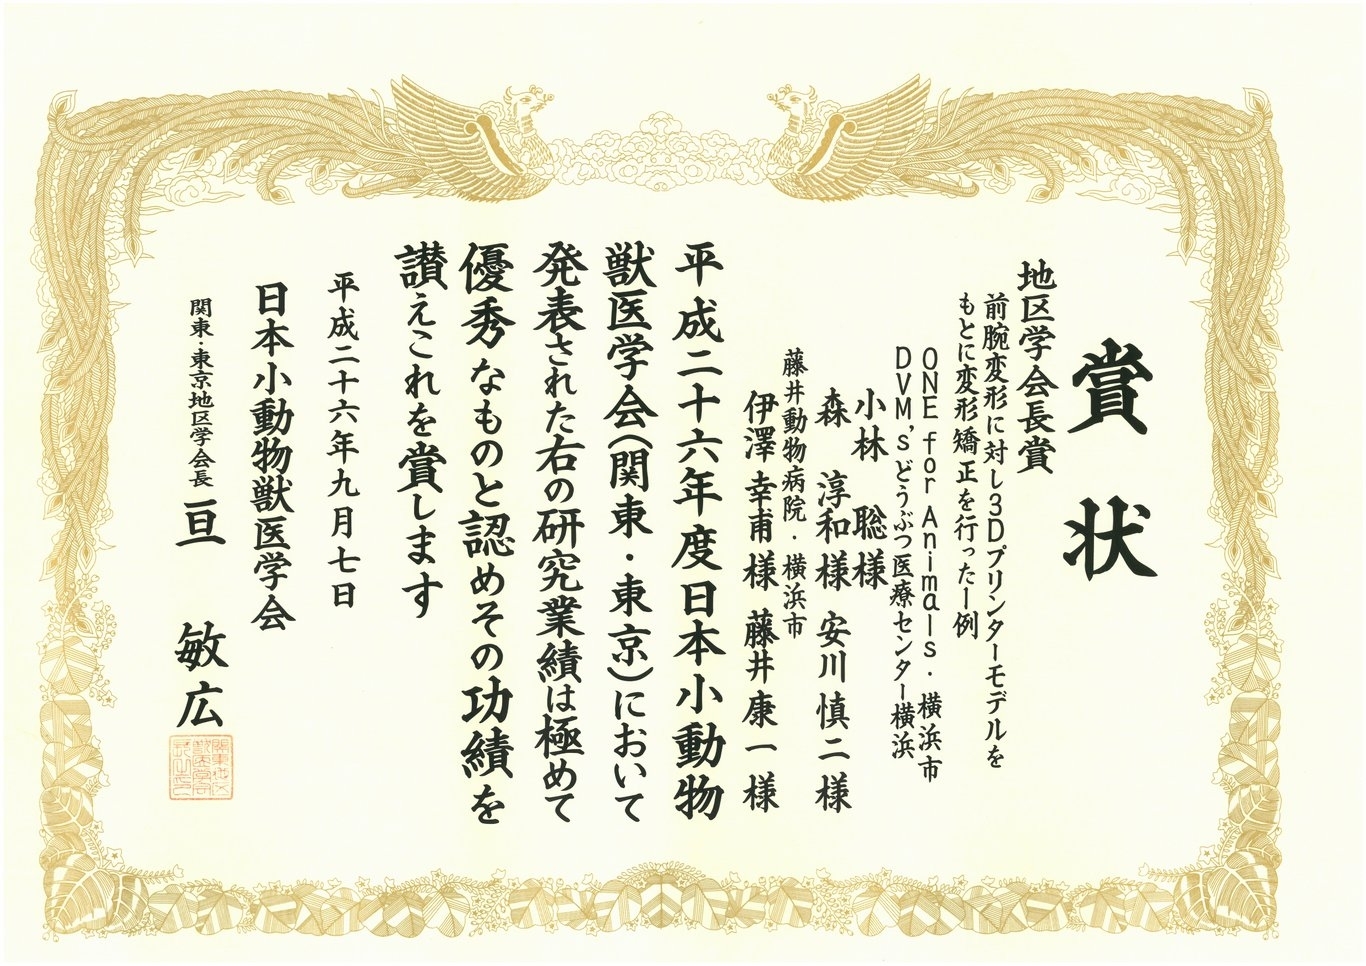 賞状
地区学会長賞
前腕変形に対し3Dプリンターモデルを
もとに変形矯正を行った一例
ONE for Animals・横浜市
DVM,sどうぶつ医療センター横浜
小林 聡様
森 淳和様 安川慎二様
藤井動物病院・横浜市
伊澤幸甫様 藤井康一様
平成二十六年度日本小動物
獣医学会(関東・東京)において
発表された右の研究業績は極めて
優秀なものと認めその功績を
讃えこれを賞します
平成二十六年九月七日
日本小動物獣医学会
関東・東京地区学会長 亘 敏広